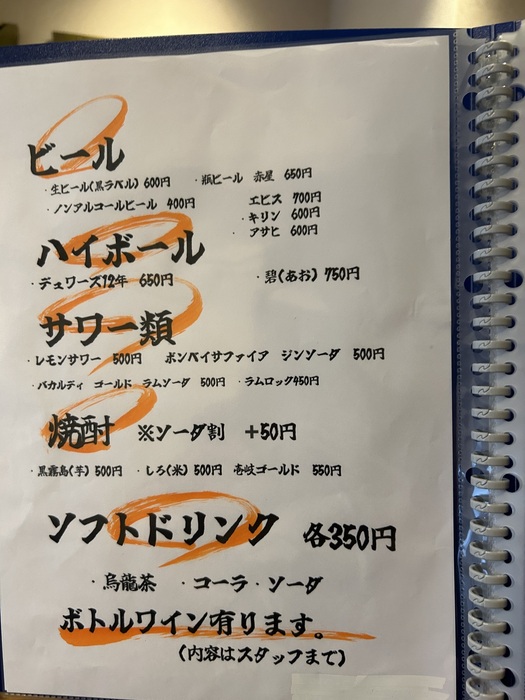 ビール
・生ビール(黒ラベル) 600円 ・瓶ビール 赤星 650円
・ノンアルコールビール 400円 エビス 700円
キリン 600円
アサヒ 600円
ハイボール
・デュワーズ12年 650円 ・碧(あお) 750円
サワー類
・レモンサワー 500円 ボンベイサファイア ジンソーダ 500円
・バカルディ ゴールド ラムソーダ 500円 ・ラムロック450円
焼酎 ※ソーダ割 +50円
・黒霧島(芋) 500円 ・しろ(米) 500円 壱岐ゴールド 550円
ソフトドリンク 各350円
・烏龍茶 ・コーラ・ソーダ
ボトルワイン有ります。
(内容はスタッフまで)